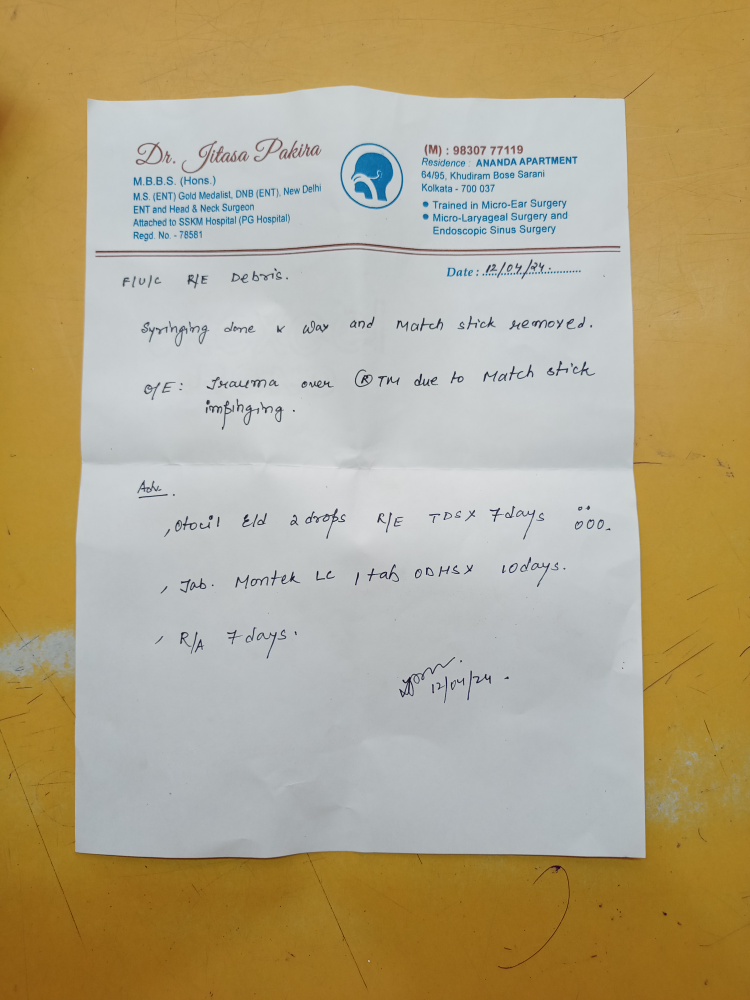 Dr. Jitasa Pakira
M.B.B.S. (Hons.)
M.S. (ENT) Gold Medalist, DNB (ENT), New Delhi
ENT and Head & Neck Surgeon
Attached to SSKM Hospital (PG Hospital)
Regd. No. - 78581
(M) : 98307 77119
Residence : ANANDA APARTMENT
64/95, Khudiram Bose Sarani
Kolkata - 700 037
• Trained in Micro-Ear Surgery
• Micro-Laryageal Surgery and
Endoscopic Sinus Surgery
Date : 12/04/24.
F/U/C R/E Debris.
Syringing done & Wax and Match stick removed.
O/E : Trauma over (R) TM due to Match stick
impinging.
Adv.
, Otocil E/d 2 drops R/E TDS X 7 days
, Tab. Montek LC 1 tab ODHS X 10 days.
, R/A 7 days.
12/04/24.